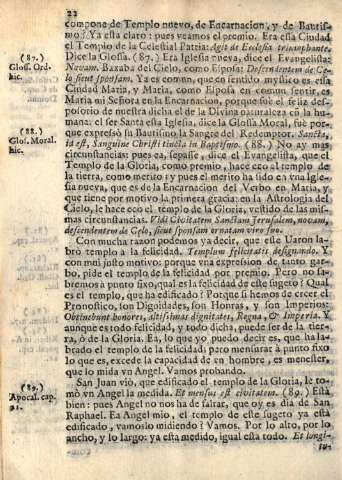 22
compone de Templo nuevo, de Encarnacion, y de Bautis-
mo? Ya està claro: pues veamos el premio. Era esta Ciudad
el Templo de la Celestial Patria: Agit de Ecclesia triumphante.
(87.)
Gloss. Ord-
hic.
Dice la Glossa. (87.) Era Iglesia nueva, dice el Evangelista:
Novam. Baxaba del Cielo, como Esposa: Descendentem de Cæ-
lo sicut sponsam. Ya es comun, que en sentido mystico es esta
Ciudad Maria, y Maria, como Esposa en comun sentir, es
Maria mi Señora en la Encarnacion, porque fuè el feliz des-
posorio de nuestra dicha el de la Divina naturaleza cõ la hu-
mana: el ser Santa esta Iglesia, dice la Glossa Moral, fuè por-
que expressò su Bautismo la Sangre del Redemptor. Sancta,
(88.)
Glos. Moral.
hic.
id est, Sanguine Christi tincta in Baptismo. (88.) No ay mas
circunstancias: pues ea, sepase, dice el Evangelista, que el
Templo de la Gloria, como premio, hace eco al templo de
la tierra, como merito; y pues el merito ha sido en vna Igle-
sia nueva, que es de la Encarnacion del Verbo en Maria, y
que tiene por motivo la primera gracia: en la Astrologia del
Cielo, le hace eco el templo de la Gloria, vestido de las mis-
mas circunstancias. Vidi Civitatem Sanctam Jerusalem, novam,
descendentem de Cælo, sicut sponsam ornatam viro suo.
Con mucha razon podemos ya decir, que este Varon la-
brò templo à la felicidad. Templum felicitatis designando. Y
con mui justo motivo: porque vna expression de tanto gar-
bo, pide el templo de la felicidad por premio. Pero no sa-
bremos à punto fixo, qual es la felicidad de este sugeto? Qual
es el templo, que ha edificado? Porque si hemos de creer el
Pronostico, son Dignidades, son Honras, y son Imperios:
Obtinebunt honores, altissimas dignitates, Regna, & Imperia. Y
aunque es todo felicidad, y todo dicha, puede ser de la tier-
ra, ò de la Gloria. Ea, lo que yo puedo decir es, que ha la-
brado el templo de la felicidad: pero mensurar à punto fixo
lo que es, excede la capacidad de vn hombre, es menester,
que lo mida vn Angel. Vamos probando.
(89.)
Apocal. cap.
21.
San Juan viò, que edificado el templo de la Gloria, le to-
mò vn Angel la medida. Et mensus est civitatem. (89.) Està
bien: pues Angel no nos ha de faltar, que oy es dia de San
Raphael. Ea Angel mio, el templo de este sugeto ya està
edificado, vamoslo midiendo? Vamos. Por lo alto, por lo
ancho, y lo largo: ya està medido, igual està todo. Et longi-